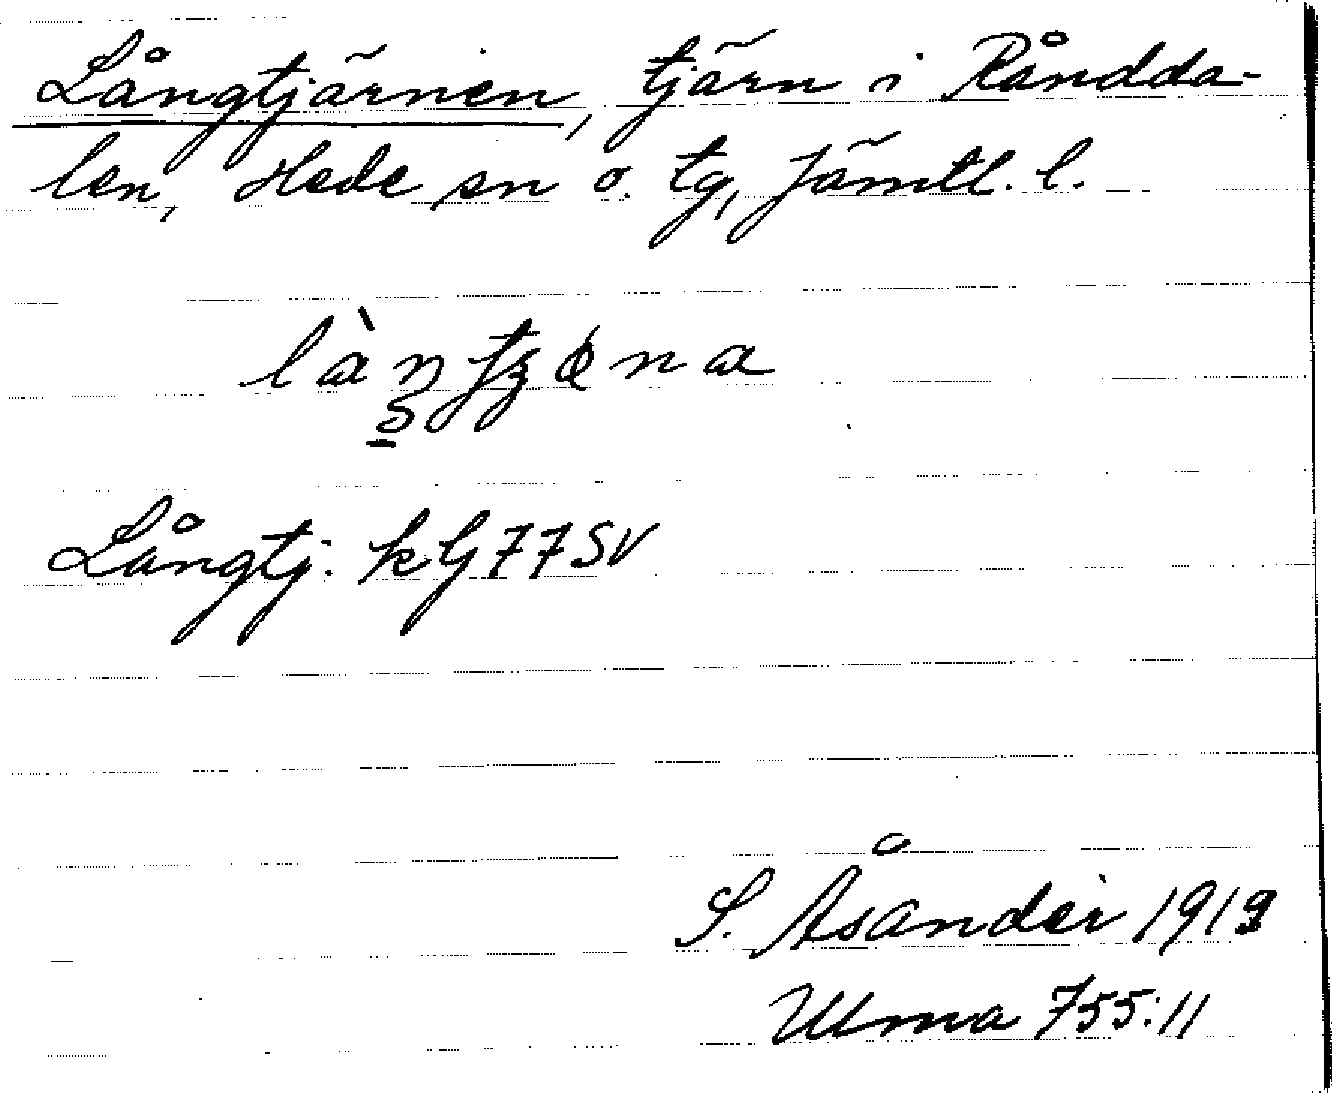 Långtjärnen, tjärn i Råndda-
len, Hede sn o. tg, Jämtl. l.
Långtj. kbj 77 SV
S. Åsander 1919
Ulma 755:11